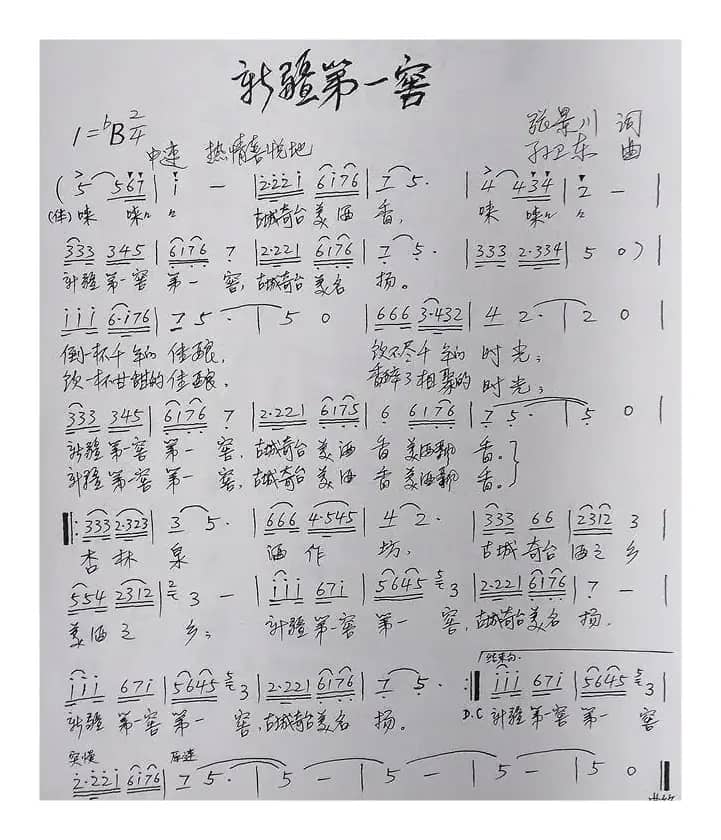 新疆第一窖
1=♭B 2/4
张景川 词
中速 热情喜悦地
孙卫东 曲
( 5 567 | i - | 2·22i 6i76 | 7 5· | 4 434 | 2 - |
(伴) 唻 唻 古城奇台美酒 香， 唻 唻
333 345 | 6176 7 | 2·221 6176 | 7 5· | 333 2·334 | 5 0 ) |
新疆第一窖 第一 窖，古城奇台美名 扬。
iii 6·i76 | 7 5· | 5 0 | 666 3·432 | 4 2· | 2 0 |
倒一杯千年的 佳酿， 饮不尽千年的 时光；
饮一杯甘甜的佳酿， 香醉了相聚的 时光；
333 345 | 6176 7 | 2·221 6175 | 6 6176 | 7 5· | 5 0 |
新疆第一窖 第一 窖，古城奇台 美酒 香 美酒飘 香。
新疆第一窖 第一 窖，古城奇台 美酒 香 美酒飘 香。
‖: 333 2·323 | 3 5· | 666 4·545 | 4 2· | 333 66 | 2312 3 |
杏林 泉 酒作 坊， 古城奇台 酒之 乡
554 2312 | 2 3 - | iii 67i | 5645 5 3 | 2·221 6176 | 7 - |
美酒之 乡； 新疆第一窖 第一 窖，古城奇台美名 扬.
结束句
iii 67i | 5645 5 3 | 2·221 6176 | 7 5· :‖ iii 67i | 5645 5 3 |
新疆 第一窖 第一 窖，古城奇台美名 扬。 D.C 新疆第一窖 第一 窖
突慢 原速
2·22i 6i76 | 7 5· | 5 - | 5 - | 5 - | 5 0 ‖